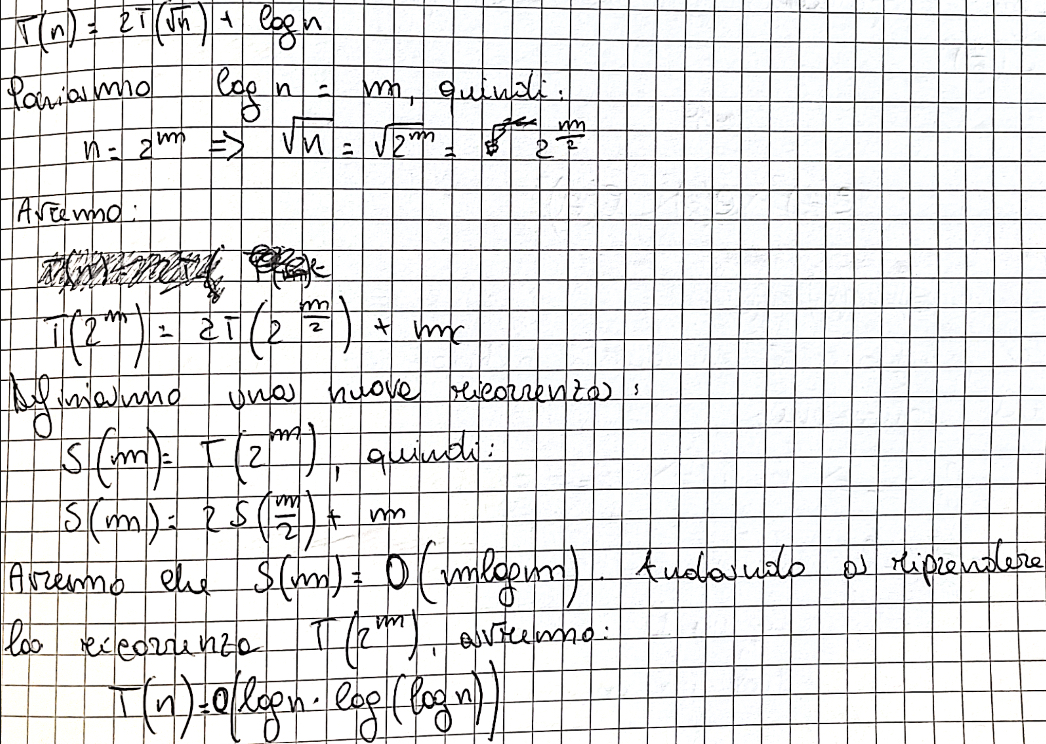 T(n) = 2T(√n) + log n
Poniamo log n = m, quindi:
n = 2^m => √n = √2^m = 2^(m/2)
Avremo:
T(2^m) = 2T(2^(m/2)) + m
Definiamo una nuova ricorrenza:
S(m) = T(2^m), quindi:
S(m) = 2S(m/2) + m
Avremo che S(m) = O(m log m). Andando a riprendere
la ricorrenza T(2^m), avremo:
T(n) = O(log n · log(log n))